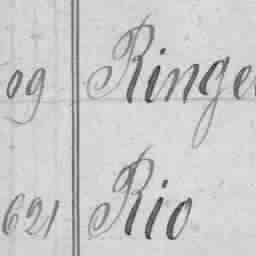 og Ringe
621 Rio